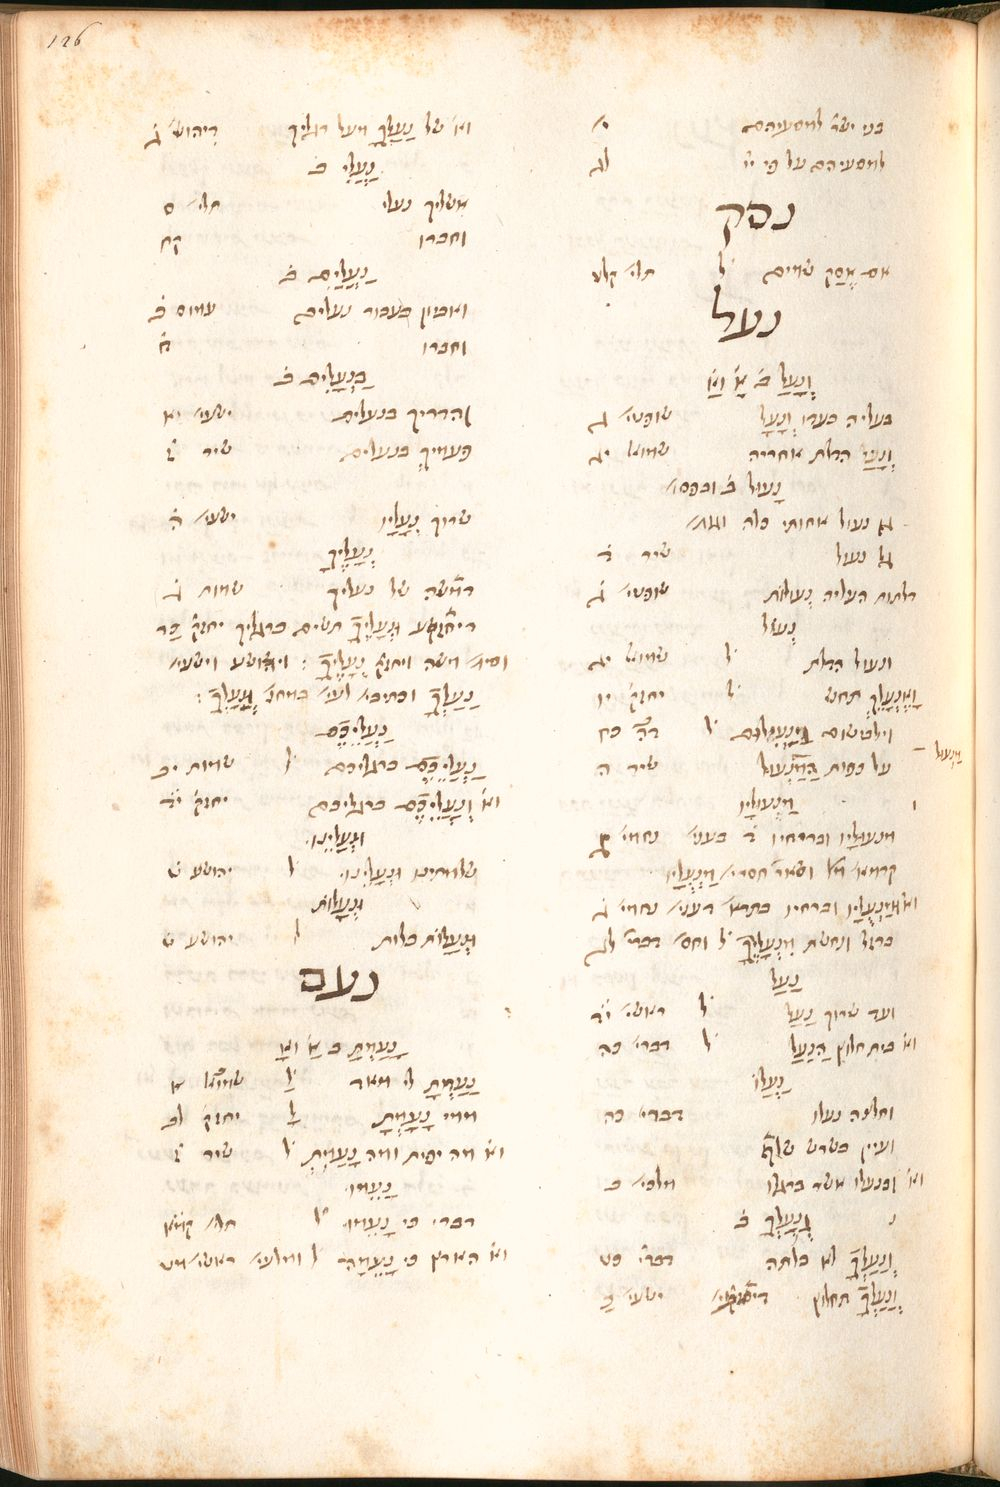 126
בני ישר׳ למסעיהם י׳
למסעיהם על פי יי׳ לג
נסק
אם אֶסַק שמים ל׳ תלי׳ קלט
נעל
וְנָעַל ב׳
בעליה בעדו וְנָעָל שופטי׳ ג
וְנָעַל הדלת אחריה שמואל יג
נָעוּל ב׳ ובפסו׳
גן נעול אחותי כלה
גל נעול שיר ד׳
דלתות העליה נְעוּלוֹת שופטי׳ ג׳
נְעוֹל
ונעול הדלת ל׳ שמואל יג
וָאֶנְעֲלֵךְ תחש ל׳ יחזק׳ יו
וילבישום ל׳ כח
על כפות הַמַּנְעוּל שיר ה
מַנְעוּל
מַנְעוּלָיו
מנעוליו ובריחיו ד׳ בעני׳ נחמי׳ ג
קדמא׳ מל׳ ושאר׳ חסרי׳ מַנְעֻלָיו
וא׳ וּמַנְעֻלָיו ובריחיו בתרא׳ דעני׳ נחמי׳ ג
ברזל ונחשת מִנְעָלֶיךָ ל׳ וחס׳ דברי׳ לג
נַעַל
ועד שרוך נַעַל ל׳ ראשי׳ יד׳
וא׳ בית חלוץ הַנַּעַל ל׳ דברי׳ כה
נַעֲלוֹ
וחלצה נעלו דברי׳ כה
ועיין בשרש שלף
וא׳ ובנעלו אשר ברגלו מלכי׳ ב
וְנַעַלְךָ ב׳
וְנַעַלְךָ לא בלתה דברי׳ כט
וְנַעַלְךָ תחלוץ ישעי׳ כ
וא׳ של נַעַלְךָ מעל רגליך דיהוש׳ ג׳
נַעֲלִי ב׳
אשליך נעלי תלי׳ ס
וחברו קח
נַעֲלָיִם ב׳
ואביון בעבור נעלים עמוס ב׳
וחברו ח׳
בַּנְּעָלִים ב׳
והדריך בנעלים ישעי׳ יא
פעמיך בנעלים שיר ז׳
שרוך נְעָלָיו ישעי׳ ה׳
נְעָלֶיךָ
דמשה של נעליך שמות ג׳
דיחזקאל וּנְעָלֶיךָ תשים ברגליך יחזק׳ כד
וסי׳ משה ויחזק׳ נְעָלֶיךָ : ויהושע וישעי׳
נַעַלְךָ וכתיבי׳ לעי׳ במחב׳ וְנַעַלְךָ :
נַעֲלֵיכֶם
נַעֲלֵיכֶם ברגליכם ל׳ שמות יב
וא׳ וְנַעֲלֵיכֶם ברגליכם יחזק׳ כד׳
וּנְעָלֵינוּ׳
שלמתינו וּנְעָלֵינוּ׳ ל׳ יהושע ט
וּנְעָלוֹת
וּנְעָלוֹת בלות ל׳ יהושע ט
נעם
נָעַמְתָּ ב׳
נָעַמְתָּ לי מאד שמוא׳ א
ממי נָעָמְתָּ יחזק׳ לב
וא׳ מה יפית ומה נָּעַמְתְּ ל׳ שיר ז׳
נָעֵמוּ׳
דברי כי נָעֵמוּ׳ ל׳ תלי׳ קמא
וא׳ הארץ כי נָעֵמָה ל׳ ומלעי׳ ראשי׳ מט